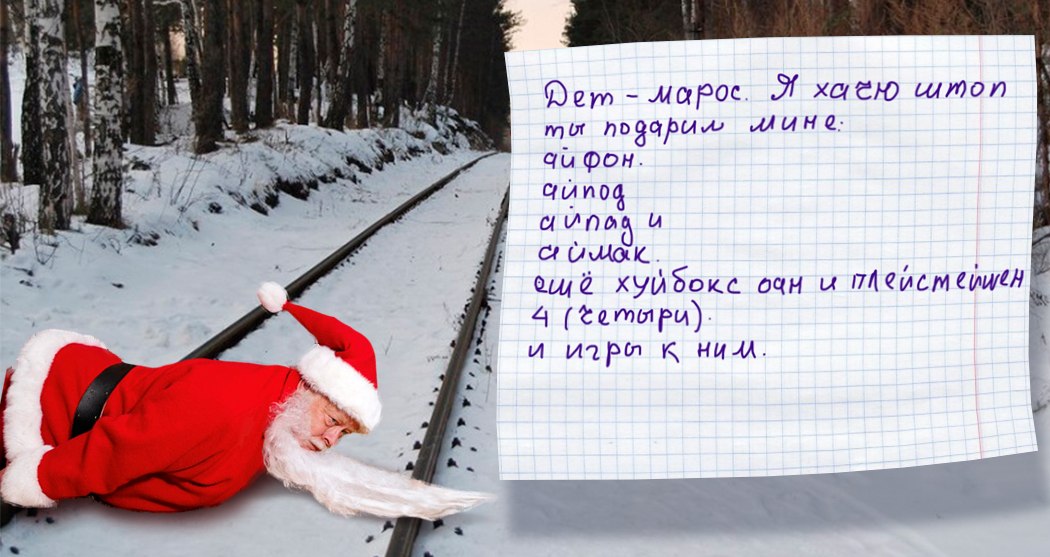 Дет - марос. Я хачю штоп
ты подарил мине:
айфон.
айпод
айпад и
аймак.
ещё хуйбокс оан и плейстейшен
4 (четыри).
и игры к ним.